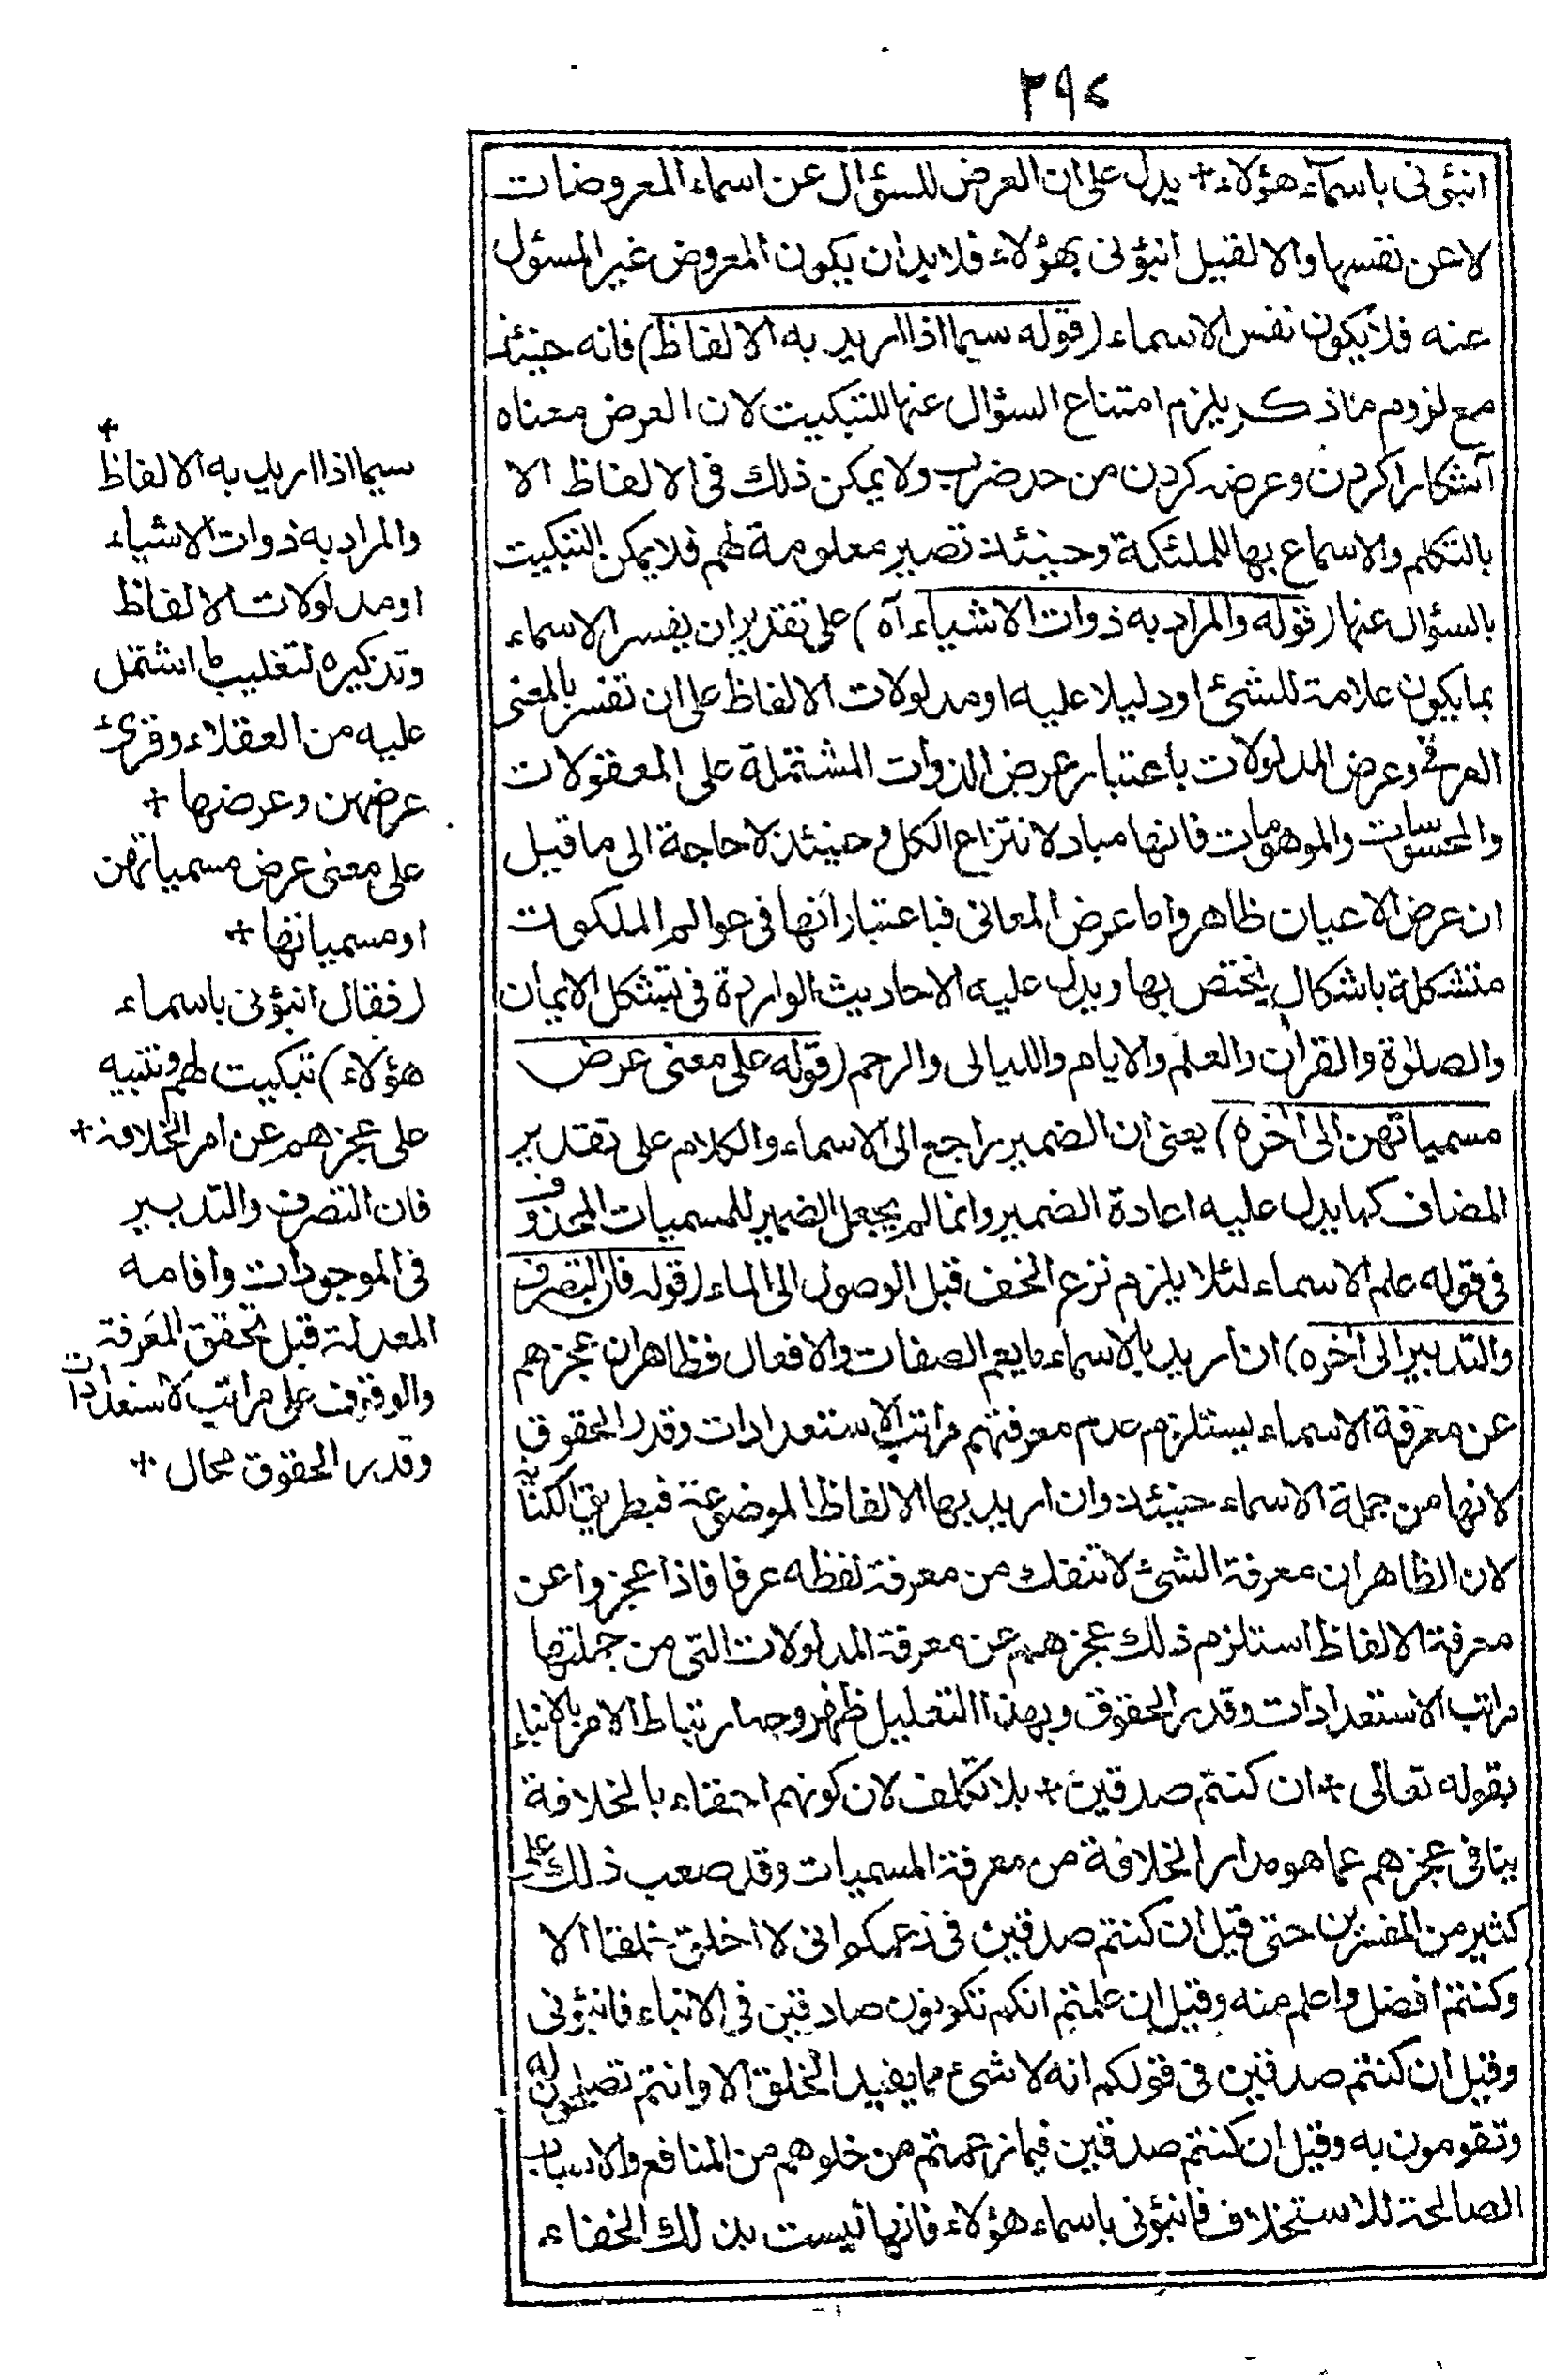 ٣٩٤
انبئونی باسمآء هؤلاء + یدل علی ان العرض للسؤال عن اسماء المعروضات
لا عن نفسها والا لقیل انبؤنی بهؤلاء فلا بد ان یکون المعروض غیر المسئول
عنه فلا یکون نفس الاسماء (قوله سیما اذا ارید به الالفاظ) فانه حینئذ
مع لزوم ما ذکر یلزم امتناع السؤال عنها للتبکیت لان العرض معناه
آشکارا کردن وعرضه کردن من حد ضرب ولا یمکن ذلك فی الالفاظ الا
بالتکلم والاسماع بها للملئکة وحینئذ تصیر معلومة لهم فلا یمکن التبکیت
بالسؤال عنها (قوله والمراد به ذوات الاشیاء آه) علی تقدیر ان یفسر الاسماء
بما یکون علامة للشئ او دلیلا علیه او مدلولات الالفاظ علی ان تفسر بالمعنی
العرفی وعرض المدلولات باعتبار عرض الذوات المشتملة علی المعقولات
والمحسوسات والموهومات فانها مباد لانتزاع الکل وحینئذ لا حاجة الی ما قیل
ان عرض الاعیان ظاهر واما عرض المعانی فباعتبار انها فی عوالم الملکوت
متشکلة باشکال یختص بها ویدل علیه الاحادیث الواردة فی تشکل الایمان
والصلوة والقرآن والعلم والایام واللیالی والرحم (قوله علی معنی عرض
مسمیاتهن الی آخره) یعنی ان الضمیر راجع الی الاسماء والکلام علی تقدیر
المضاف کما یدل علیه اعادة الضمیر وانما لم یجعل الضمیر للمسمیات المحذوف
فی قوله علم الاسماء لئلا یلزم نزع الخف قبل الوصول الی الماء (قوله فان التصرف
والتدبیر الی آخره) ان ارید بالاسماء ما یعم الصفات والافعال فظاهر ان عجزهم
عن معرفة الاسماء یستلزم عدم معرفتهم مراتب الاستعدادات وقدر الحقوق
لانها من جملة الاسماء حینئذ وان ارید بها الالفاظ الموضوعة فبطریق الکنایة
لان الظاهر ان معرفة الشئ لا تنفك من معرفة لفظه عرفا فاذا عجزوا عن
معرفة الالفاظ استلزم ذلك عجزهم عن معرفة المدلولات التی من جملتها
مراتب الاستعدادات وقدر الحقوق وبهذا التعلیل ظهر وجه ارتباط الامر بالانباء
بقوله تعالی + ان کنتم صدقین + بلا تکلف لان کونهم احقاء بالخلافة
ینافی عجزهم عما هو مدار الخلافة من معرفة المسمیات وقد صعب ذلك علی
کثیر من المفسرین حتی قیل ان کنتم صدقین فی زعمکم انی لا اخلق خلقا الا
وکنتم افضل واعلم منه وقیل ان علمتم انکم تکونون صادقین فی الانباء فانبؤنی
وقیل ان کنتم صدقین فی قولکم انه لا شئ مما یفید الخلق الا وانتم تصلحون له
وتقومون به وقیل ان کنتم صدقین فیما زعمتم من خلوهم من المنافع والاسباب
الصالحة للاستخلاف فانبؤنی باسماء هؤلاء فانها لیست بذلك الخفاء
سیما اذا ارید به الالفاظ +
والمراد به ذوات الاشیاء
او مدلولات الالفاظ
وتذکیره لتغلیب ما اشتمل
علیه من العقلاء وقرئ
عرضهن وعرضها +
علی معنی عرض مسمیاتهن
او مسمیاتها +
(فقال انبؤنی باسماء
هؤلاء) تبکیت لهم وتنبیه
علی عجزهم عن امر الخلافة +
فان التصرف والتدبیر
فی الموجودات واقامه
المعدلة قبل تحقق المعرفة
والوقوف علی مراتب الاستعدادات
وقدر الحقوق محال +